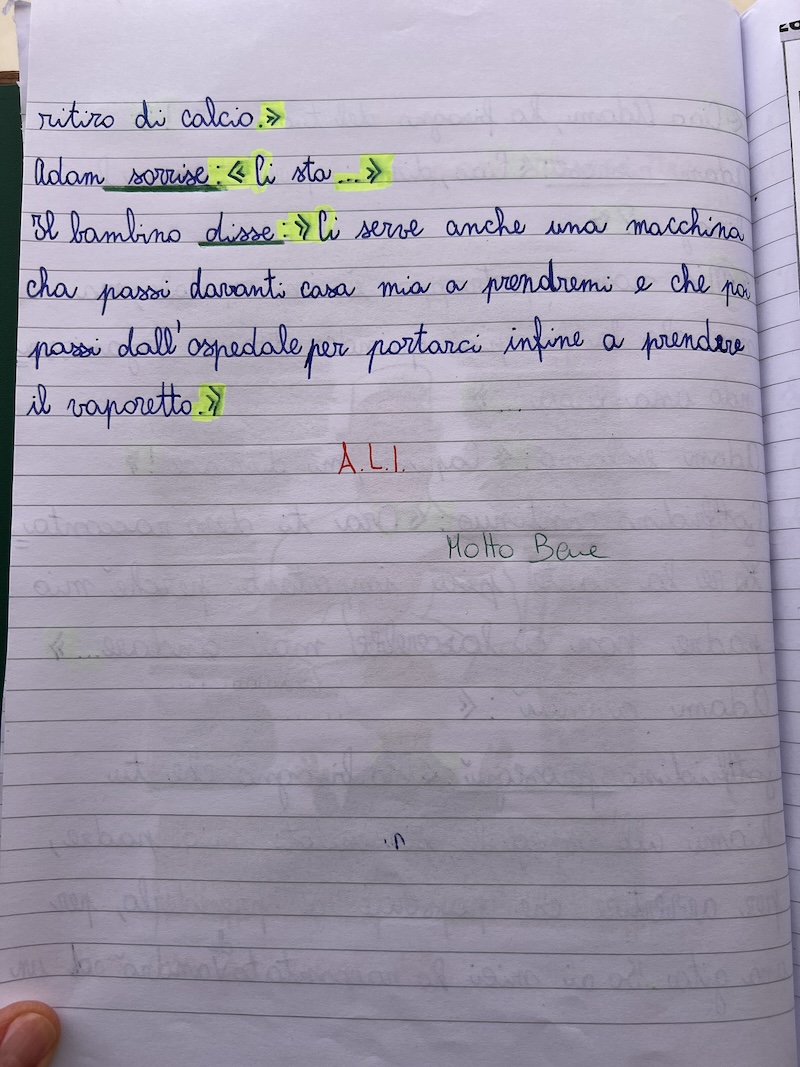 ritiro di calcio.»
Adam sorrise: « Ci sta ...»
Il bambino disse: » Ci serve anche una macchina
cha passi davanti casa mia a prendremi e che poi
passi dall'ospedale per portarci infine a prendere
il vaporetto.»
A.L.I.
Molto Bene